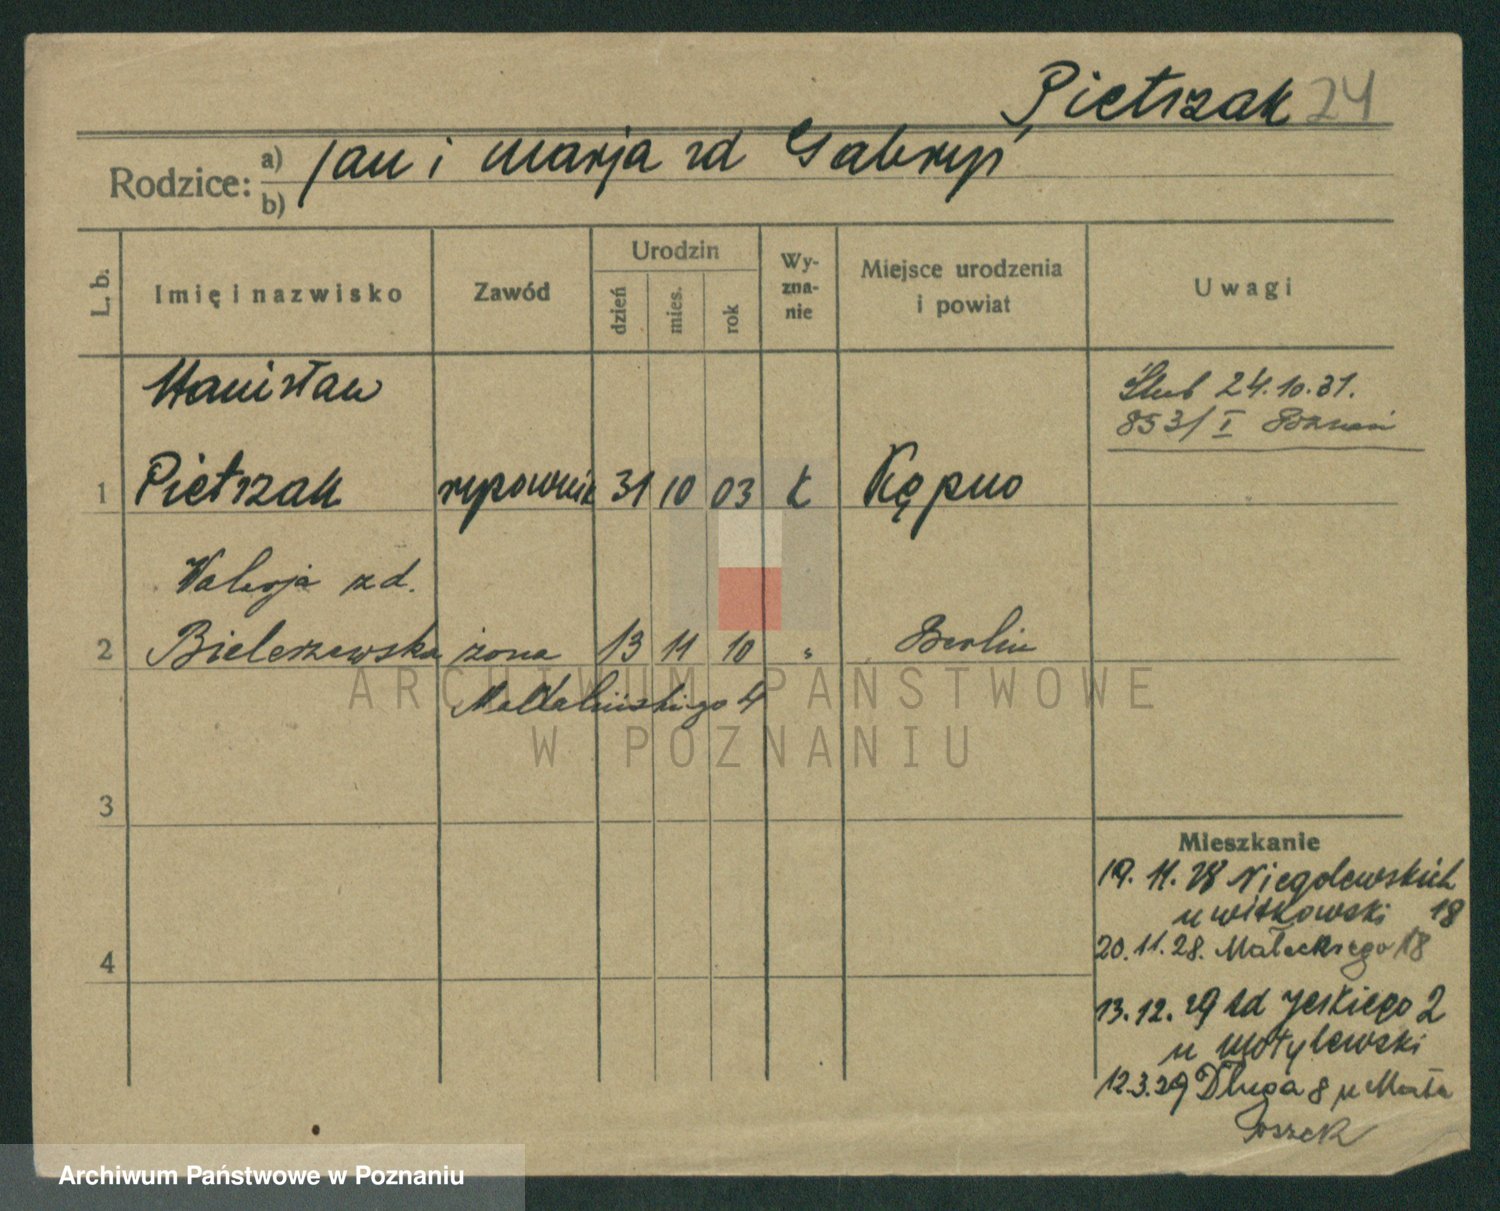 Pietrzak 24
Rodzice: a) Jan i Marja zd Gabryś
b)
L. b.
Imię i nazwisko
Zawód
Urodzin
dzień
mies.
rok
Wy-
zna-
nie
Miejsce urodzenia
i powiat
Uwagi
Stanisław
Ślub 24.10.31.
853/I Poznań
1 Pietrzak 31 10 03 k Kępno
Walerja zd.
2 żona 13 11 10 " Berlin
4
ARCHIWUM PAŃSTWOWE
W POZNANIU
3
Mieszkanie
19. 11. 28 Niegolewskich
u Witkowski 18
4
20. 11. 28. Małeckiego 18
13. 12. 2
u Motylewski
12.3.29 Długa 8 u
Archiwum Państwowe w Poznaniu